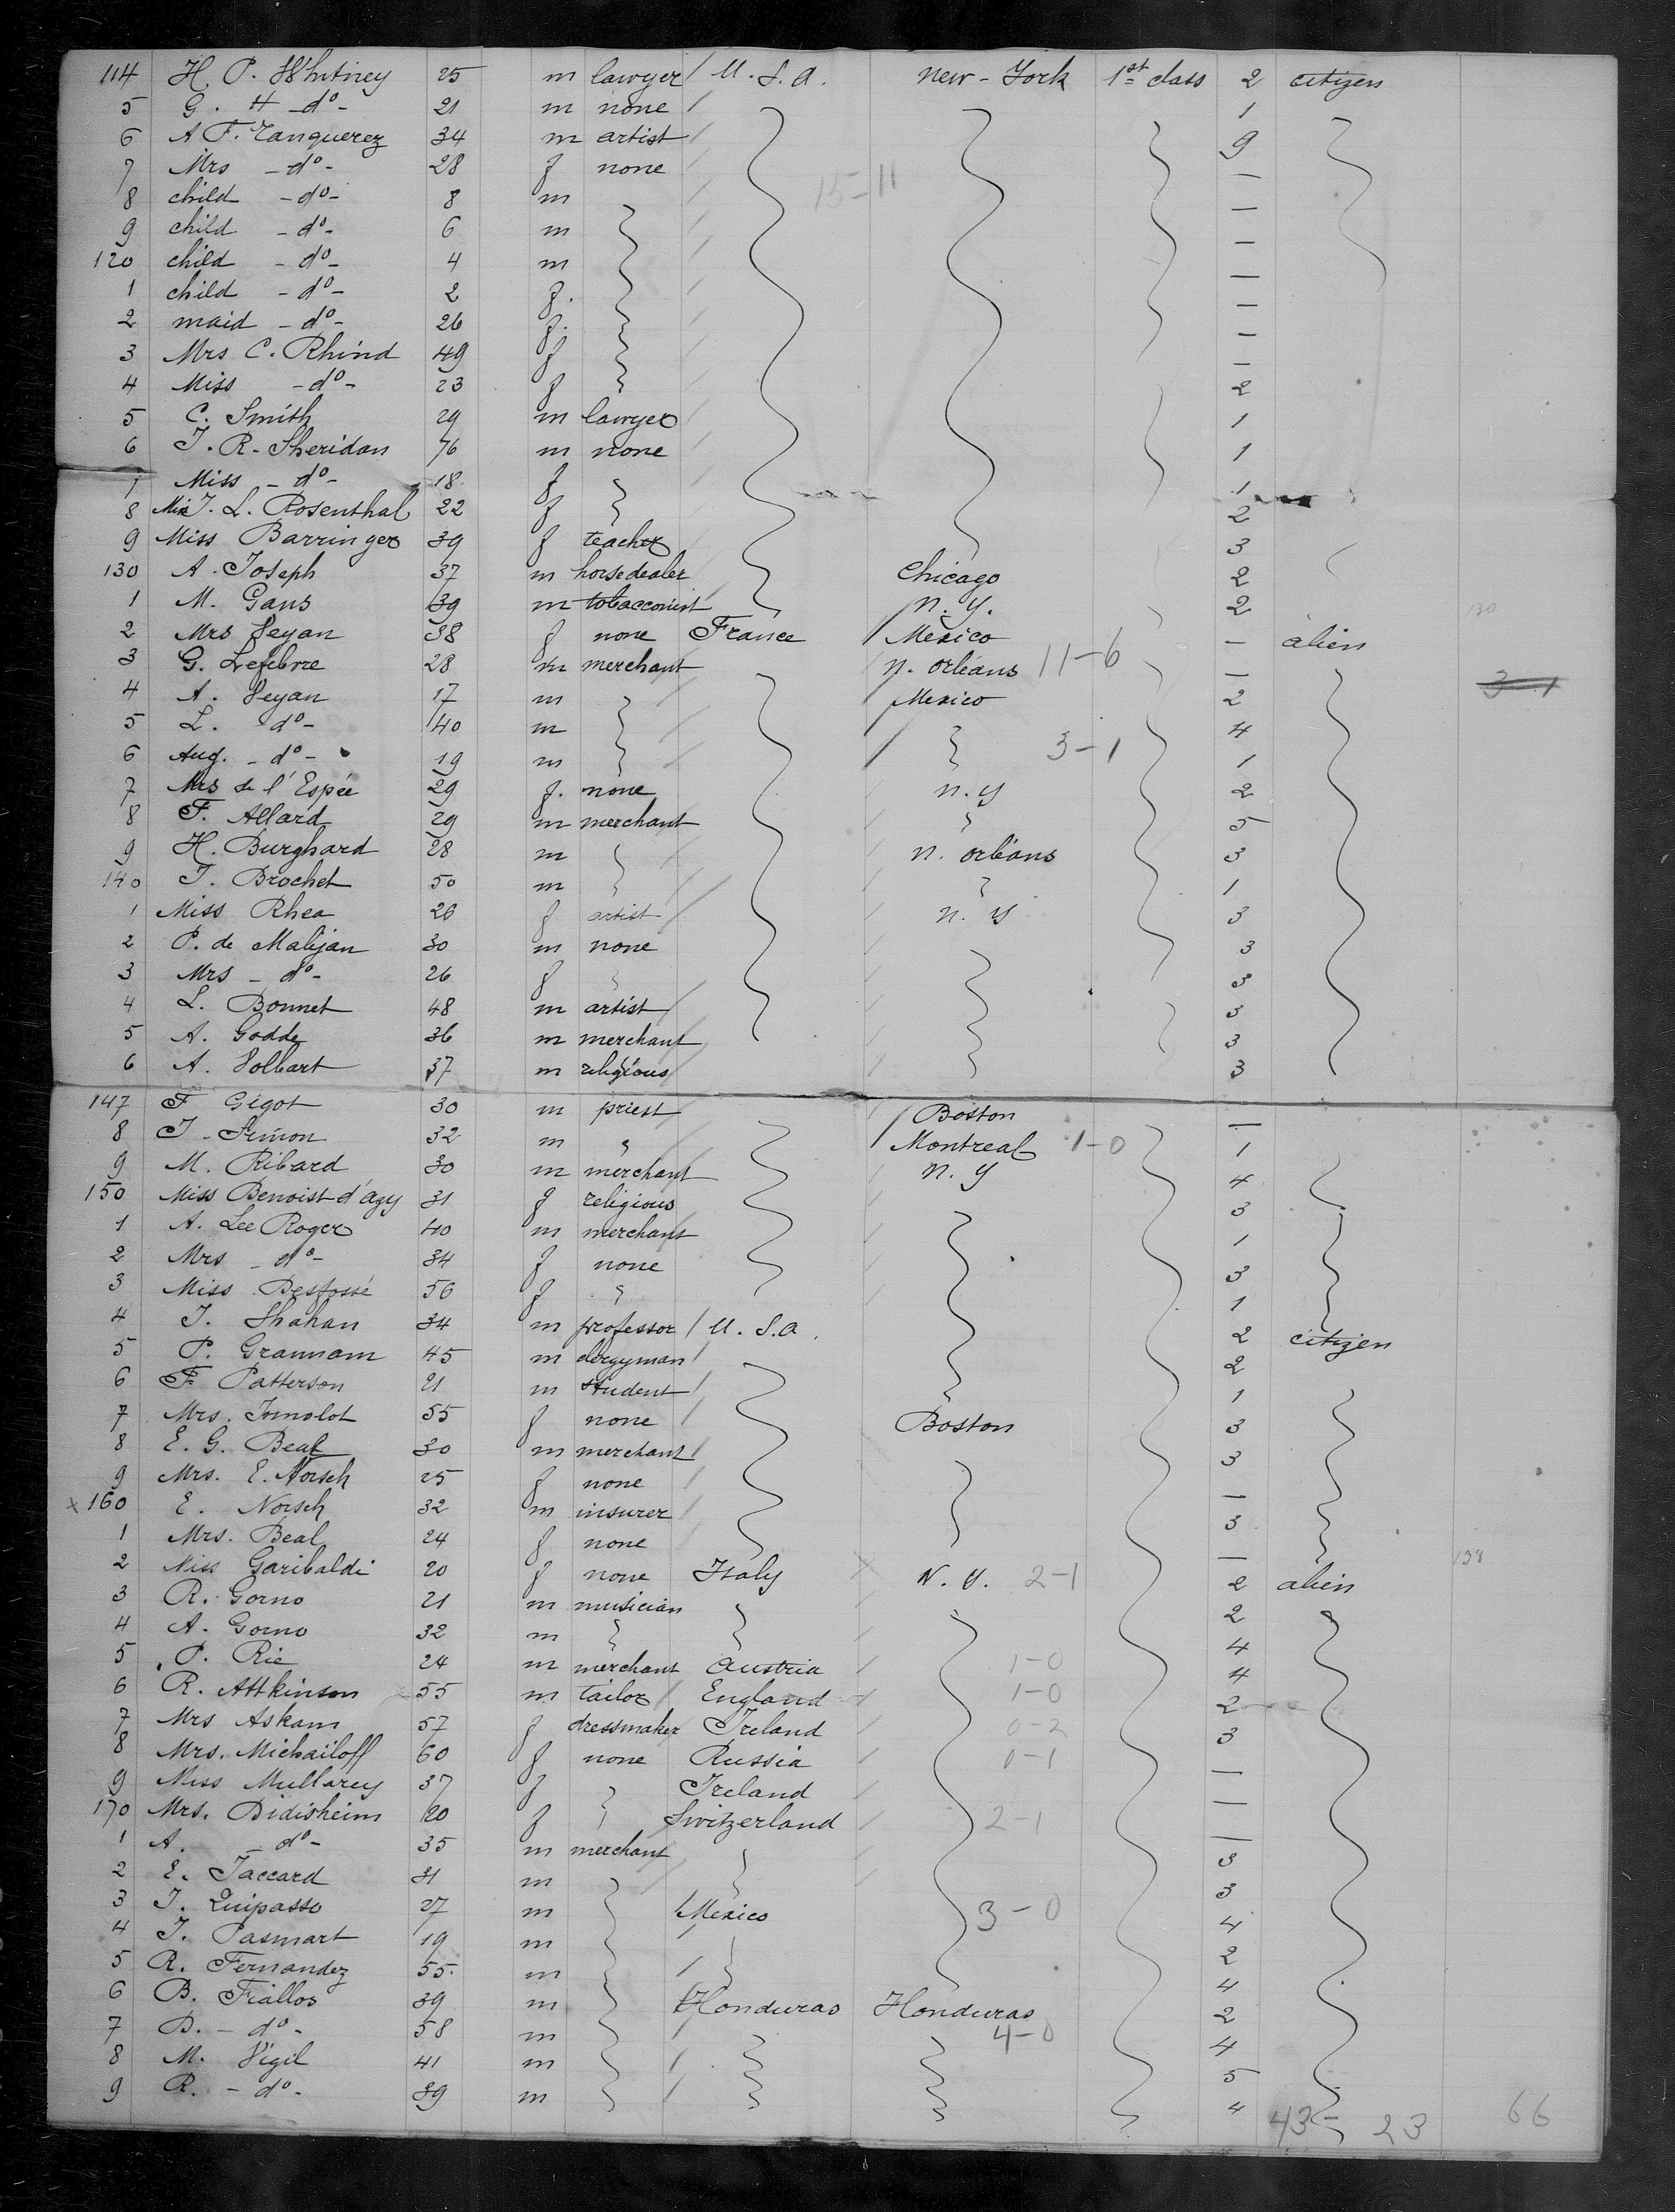 114 H. P. Whitney 25 m lawyer / U.S.A. New-York 1st class 2 citizen
5 G. H -do- 21 m none / 1
6 A F. Tanquerez 34 m artist / 9
7 Mrs -do- 28 f none / —
8 child -do- 8 m / 15-11 —
9 child -do- 6 m / —
120 child -do- 4 m / —
1 child -do- 2 f. / —
2 maid -do- 26 f. / —
3 Mrs C. Rhind 49 f / —
4 Miss -do- 23 f / 2
5 C. Smith 29 m lawyer / 1
6 J. R. Sheridan 76 m none / 1
7 Miss -do- 18 f 1
8 Miss J. L. Rosenthal 22 f 2
9 Miss Barringer 39 f teacher 3
130 A. Joseph 37 m horsedealer Chicago 2
1 M. Gans 39 m tobacconist N.Y. 2 130
2 Mrs Seyan 38 f none France / Mexico — alien
3 G. Lefebvre 28 m merchant / N. Orléans 11-6 — 3-1
4 A. Seyan 17 m / Mexico 2
5 L. do- 40 m / 4
6 Aug. -do- 19 m / 3-1 1
7 Mrs de l'Espée 29 f. none N.Y 2
8 F. Allard 29 m merchant 5
9 H. Burghard 28 m N. Orléans 3
140 J. Brochet 50 m / 1
1 Miss Rhea 26 f artist / N.Y 3
2 P. de Malijan 30 m none / 3
3 Mrs -do- 26 f / 3
4 L. Bonnet 48 m artist / 3
5 A. Godde 36 m merchant / 3
6 A. Volbart 37 m religious / 3
147 F Gigot 30 m priest / Boston —
8 J. Simon 32 m " / Montreal 1-0 1
9 M. Ribard 30 m merchant / N.Y 4
150 Miss Benoist d'Azy 31 f religious / 3
1 A. Lee Roger 40 m merchant / 1
2 Mrs -do- 34 f none / 3
3 Miss Desfossé 56 f / 1
4 J. Shahan 34 m professor / U.S.A. 2 citizen
5 P. Grannam 45 m clergyman / 2
6 F. Patterson 21 m student / 1
7 Mrs. 55 f none / Boston 3
8 E. G. Beal 30 m merchant / 3
9 Mrs. E. Norsch 25 f none / —
x 160 E. Norsch 32 m insurer / 3
1 Mrs. Beal 24 f none —
2 Miss Garibaldi 20 f none Italy x N.Y. 2-1 2 alien 138
3 R. Gorno 21 m musician / 2
4 A. Gorno 32 m / 4
5 P. Rie 24 m merchant Austria / 1-0 4
6 R. Attkinson 55 m tailor England 1-0 2
7 Mrs Askam 57 f dressmaker Ireland / 0-2 3
8 Mrs. Michaïloff 60 f none Russia / 0-1 —
9 Miss Mullarey 37 f Ireland / —
170 Mrs. Didisheim 20 f Switzerland / 2-1 —
1 A. -do- 35 m merchant / 3
2 E. Jaccard 31 m / 3
3 J. Quipasso 27 m / Mexico 3-0 4
4 J. Pasmart 19 m / 2
5 R. Fernandez 55 m / 4
6 B. Fiallos 39 m / Honduras Honduras 2
7 D. -do- 58 m / 4-0 4
8 M. Vigil 41 m / 5
9 R. -do- 39 m / 4
43-23 66